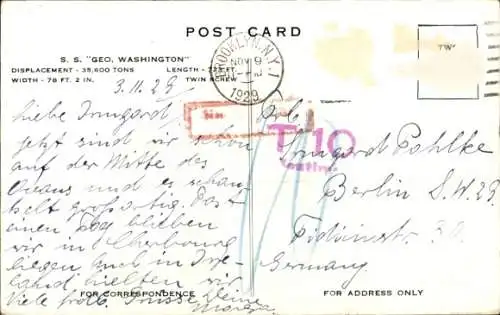 POST CARD
S. S. "GEO. WASHINGTON"
DISPLACEMENT - 35,600 TONS LENGTH - 723 FT.
WIDTH - 78 FT. 2 IN. TWIN SCREW
BROOKLYN, N.Y.
NOV 9
1929
3.11.29
Liebe Irmgard,
jetzt sind wir schon
auf der Mitte des
Ozeans und es schau-
kelt großartig. Das
einen Tag blieben
wir in Cherbourg
liegen auch in Irr-
land hielten wir
Viele frohe Grüsse Deine
T 10
centimes
Irmgard Pohlke
Berlin S.W. 29
Fidicinstr.
Germany
FOR CORRESPONDENCE
FOR ADDRESS ONLY